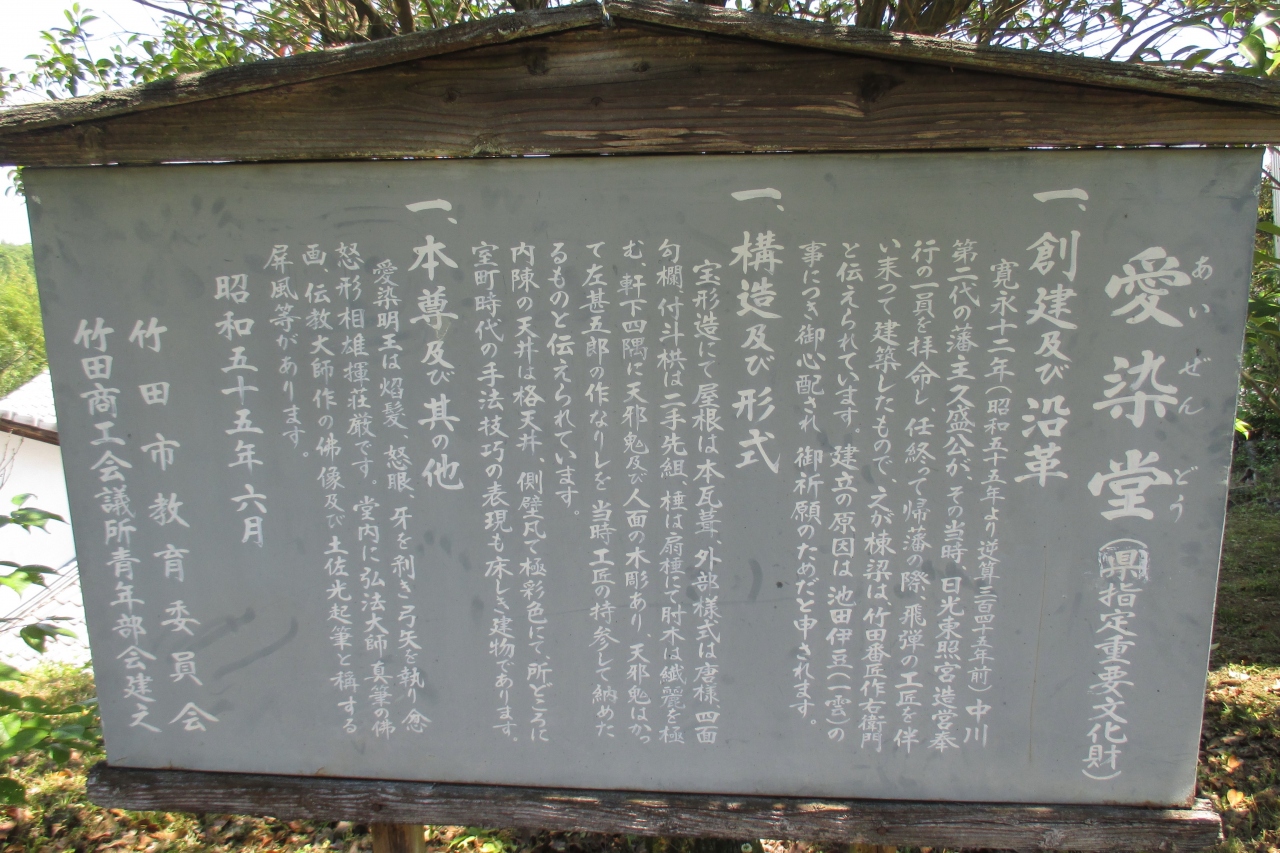 愛染堂（県指定重要文化財）
あいぜんどう
一、創建及び沿革
寛永十二年（昭和五十五年より逆算三百四十五年前）中川
第二代の藩主久盛公が、その当時、日光東照宮造営奉
行の一員を拝命し、任終って帰藩の際、飛弾の工匠を伴
い来って建築したもので、之が棟梁は、竹田番匠作右衛門
と伝えられています。建立の原因は池田伊豆（一雲）の
事につき御心配され、御祈願のためだと申されます。
一、構造及び形式
宝形造にて屋根は本瓦葺、外部様式は唐様、四面
勾欄付斗栱は二手先組、棰は扇棰にて肘木は繊麗を極
む、軒下四隅に天邪鬼及び人面の木彫あり、天邪鬼はかっ
て左甚五郎の作なりしを、当時工匠の持参して納めた
るものと伝えられています。
内陳の天井は格天井、側壁凡て極彩色にて、所どころに
室町時代の手法技巧の表現も床しき建物であります。
一、本尊及び其の他
愛染明王は焰髪、怒眼、牙を剥き弓矢を執り忿
怒形相雄揮荘厳です。堂内に弘法大師、真筆の佛
画、伝教大師作の佛像及び土佐光起筆と称する
屏風等があります。
昭和五十五年六月
竹田市教育委員会
竹田商工会議所青年部会建之